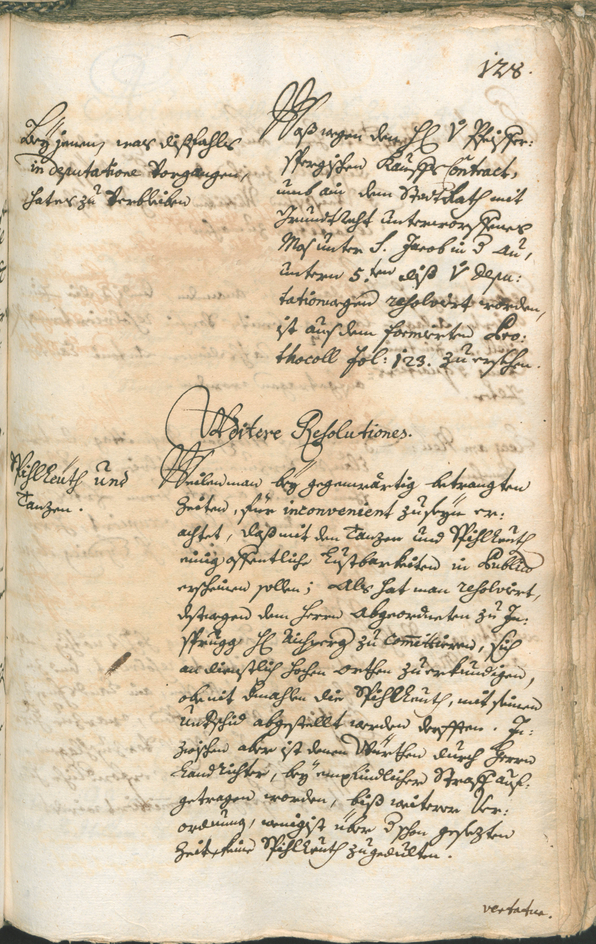 128.
Bey jenem, was dißfahls
in deputatione vorgangen,
hat es zu verbleiben
Waß wegen dem H: v
Kauffs Contract,
und an dem Stadtrath mit
Grundtrecht unterworffenes
Mos unter S. Jacob in der Au,
untern 5.ten diß v depu:
tation wegen resolviert worden,
ist aus dem formierten Pro:
thocoll fol: 123. zu ersehen.
Weitere Resolutiones.
Spihlleüth und
Tanzen.
Weilen man bey gegenwärtig betrangten
Zeiten, für inconvenient zu seyn er:
achtet, daß mit den Tanzen und Spihlleüth
einig offentliche Lustbarkeiten in Publico
erscheinen sollen; Als hat man resolviert,
destwegen dem Herrn Abgeordneten zu In:
sprugg H: zu committieren, sich
an dienstlich hochen orthen zu erkundigen,
ob nit dermahlen die Spihlleüth, mit seinen
Undterschid abgestellt werden derfften. In:
zwischen aber ist denen Würthen durch Herrn
Landrichter, bey empfindlicher Straff auf:
getragen worden, biß weiterer Ver:
ordnung, wenigist über die schon gesezten
Zeit, keine Spihlleüth zugedulten.
vertatur.